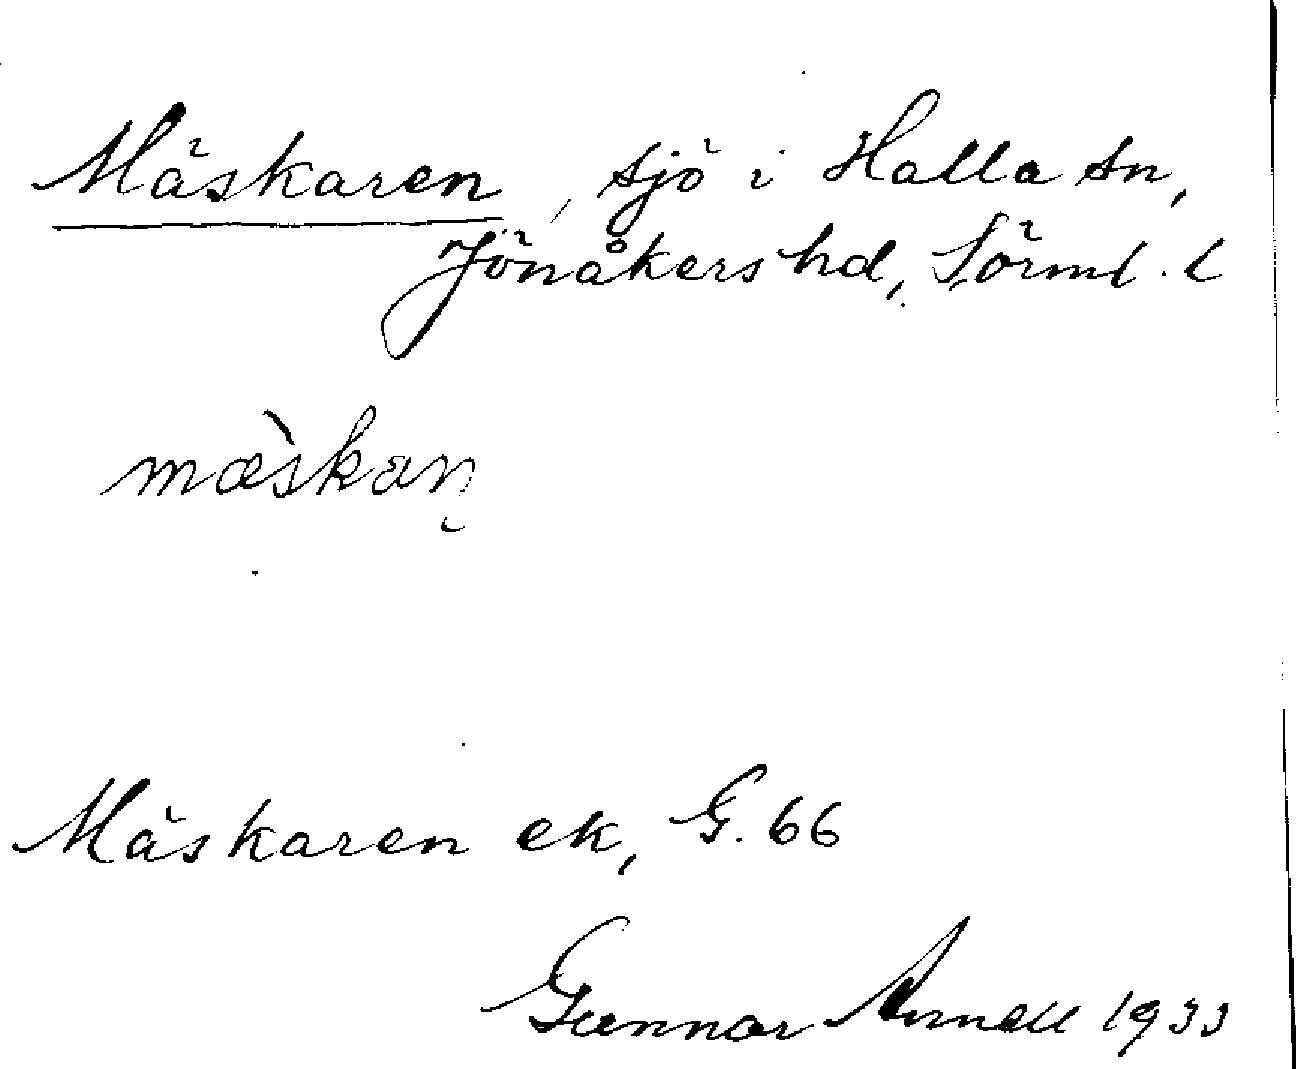 Mäskaren, sjö i Halla sn,
Jönåkers hd, Sörml. l
mæ̀skaṇ
Mäskaren ek, G. 66
Gunnar Arnell 1933